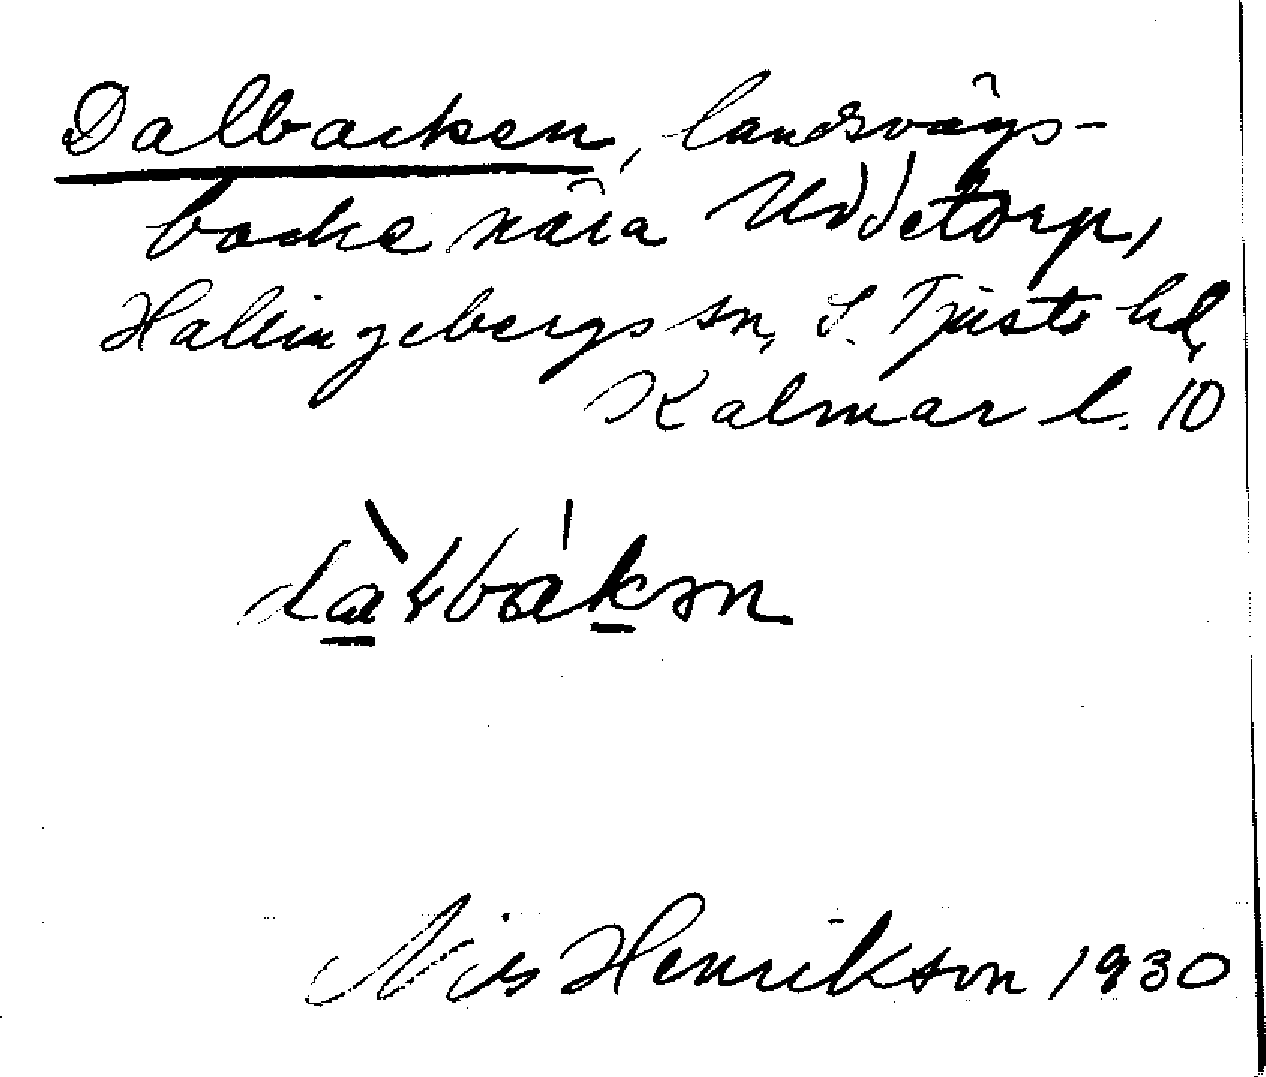 Dalbacken, landsvägs-
backe nära Uddetorp,
Hallingebergs sn, S. Tjusts hd,
Kalmar l. 10
Nils Henrikson 1930